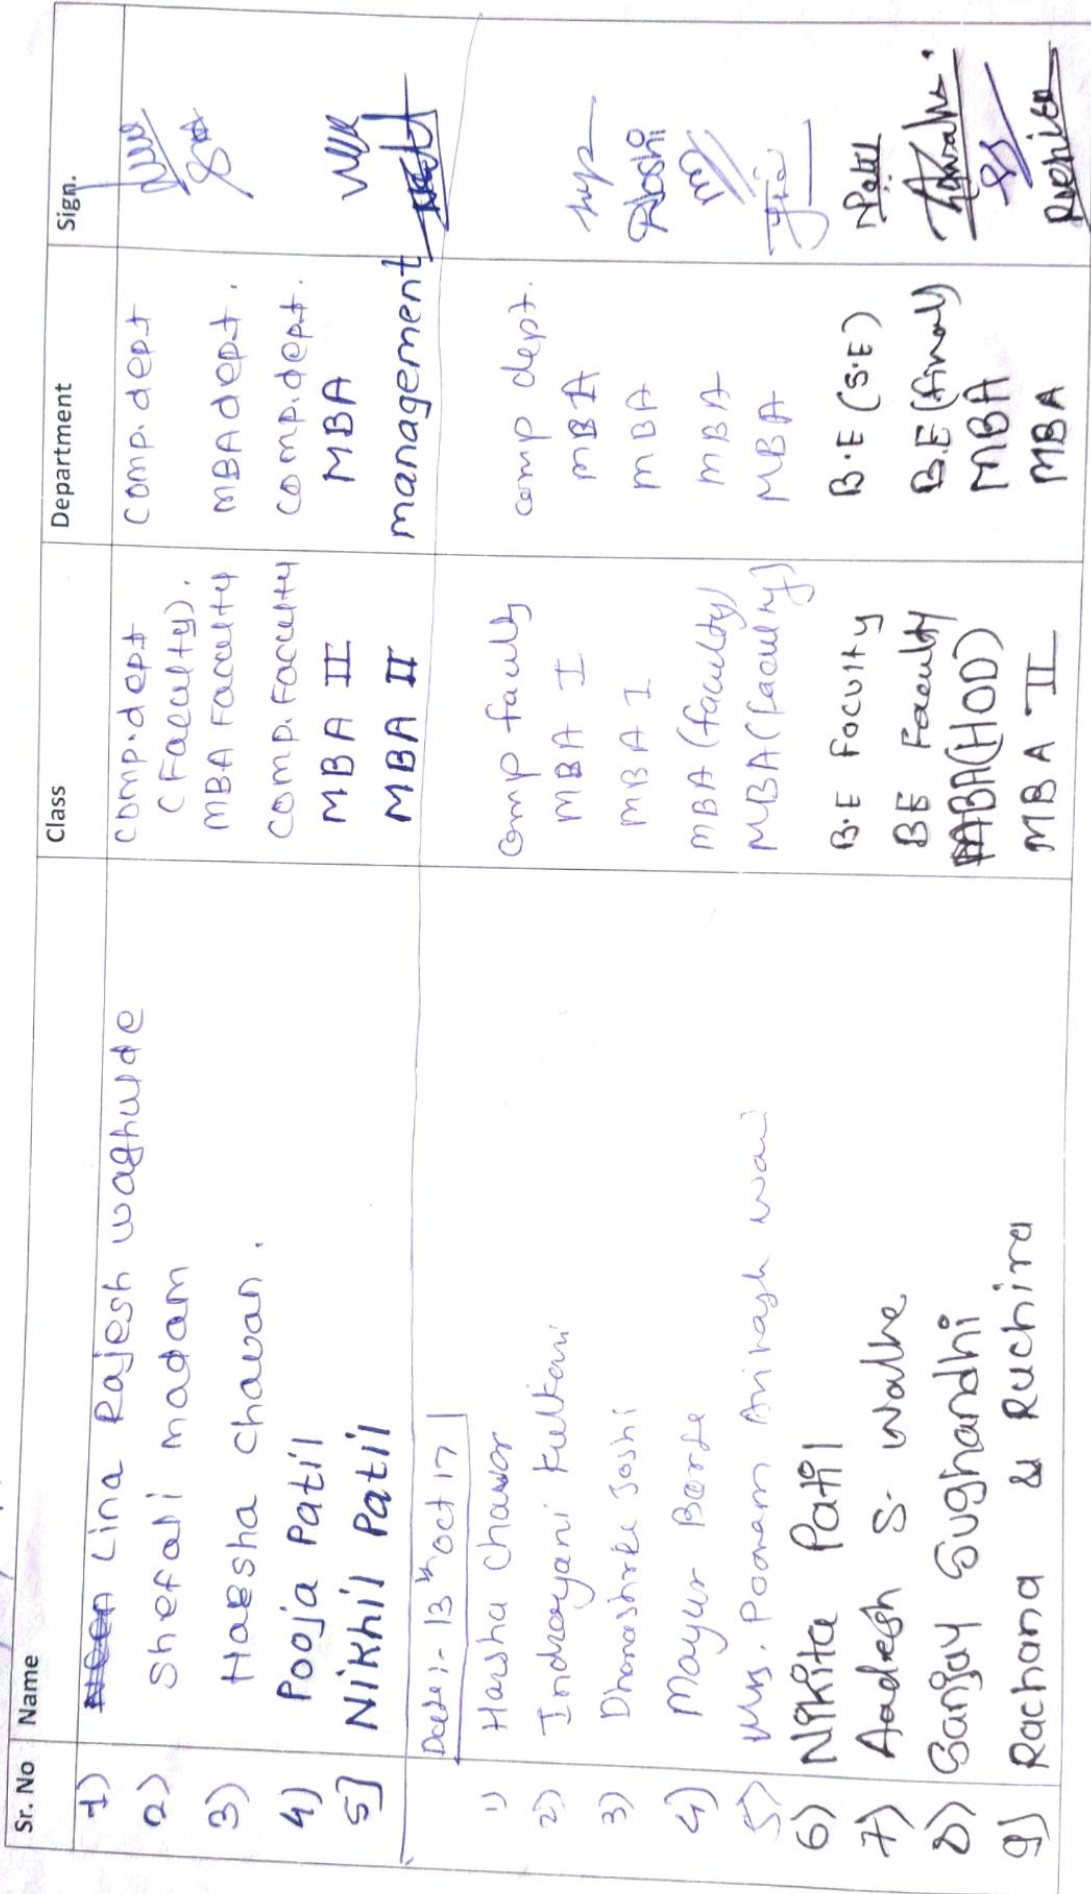 Sr. No Name Class Department Sign.
1) Lina Rajesh waghulde comp.dept comp.dept
(Faculty).
2) Shefali madam MBA Faculty MBA dept.
3) Harsha Chavan. comp.Faculty comp.dept.
4) Pooja Patil MBA II MBA
5] Nikhil Patil MBA II management
Date:- 13th Oct 17
1) Harsha Chavan comp faculty comp dept.
2) Indrayani Kulkarni MBA I MBA
3) Dhanashree Joshi MBA I MBA Joshi
4) Mayur Borse MBA (faculty) MBA
5) Mrs. Poonam MBA (faculty) MBA
6) Nikita Patil B.E Faculty B.E (S.E) Patil
7) Aadesh S. Walhe BE Faculty B.E (final)
8) Sanjay Sughandhi MBA(HOD) MBA
9] Rachana & Ruchira MBA II MBA